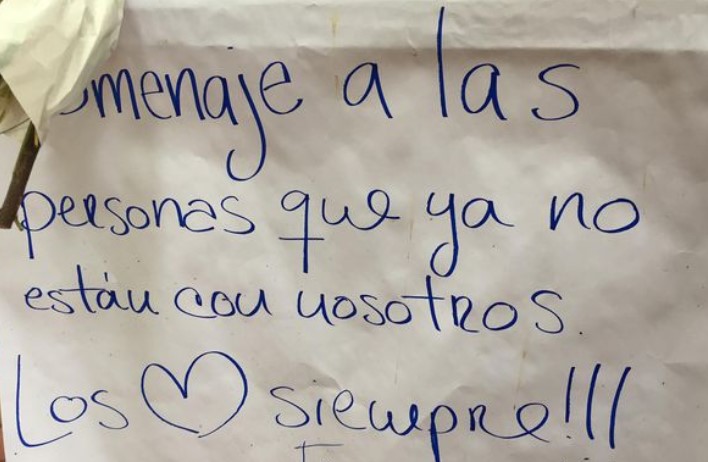 omenaje a las
personas que ya no
están con nosotros.
Los ♡ siempre!!!